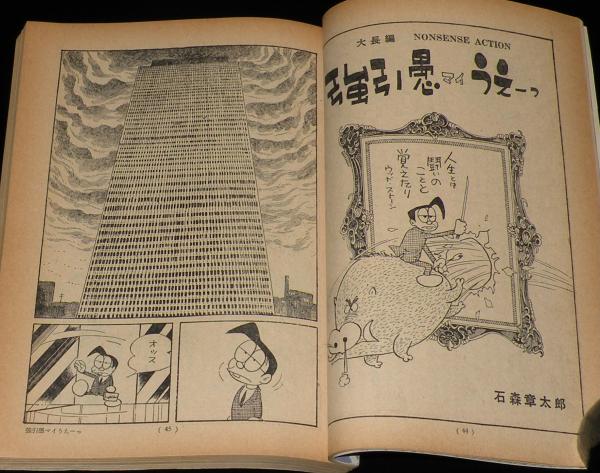 大長編 NONSENSE ACTION
強引愚マイうえーっ
人生とは
闘いの
ことと
覚えたり
ウッドストーン
石森章太郎
(44)
オッス
強引愚マイうえーっ
(45)